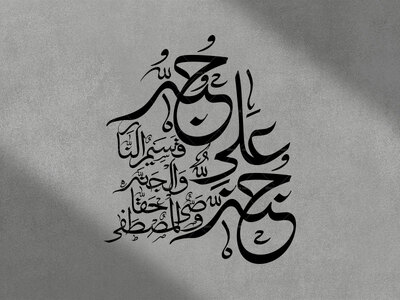 عَلِيٌّ حُبُّهُ جُنَّه
قَسيمُ النّار
والجنّه
وصيّ المصطفى حقّا